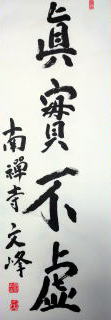 眞實不虛
南禪寺文峰